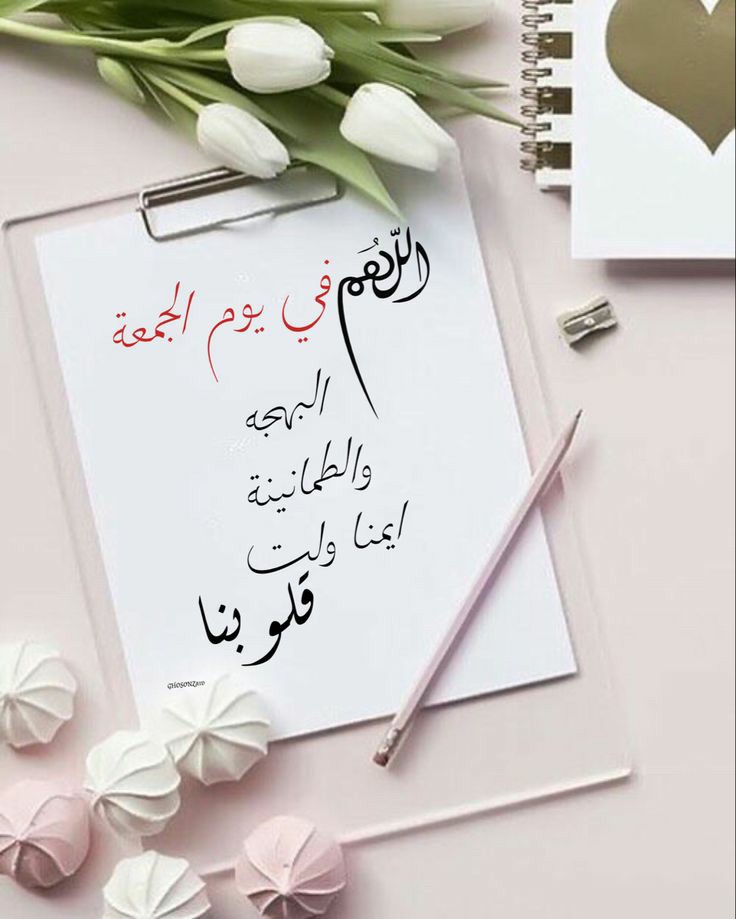 اللَّهُم في يوم الجمعة
البهجه
والطمانينة
ايمنا ولت
قلوبنا
GHOSONZ810